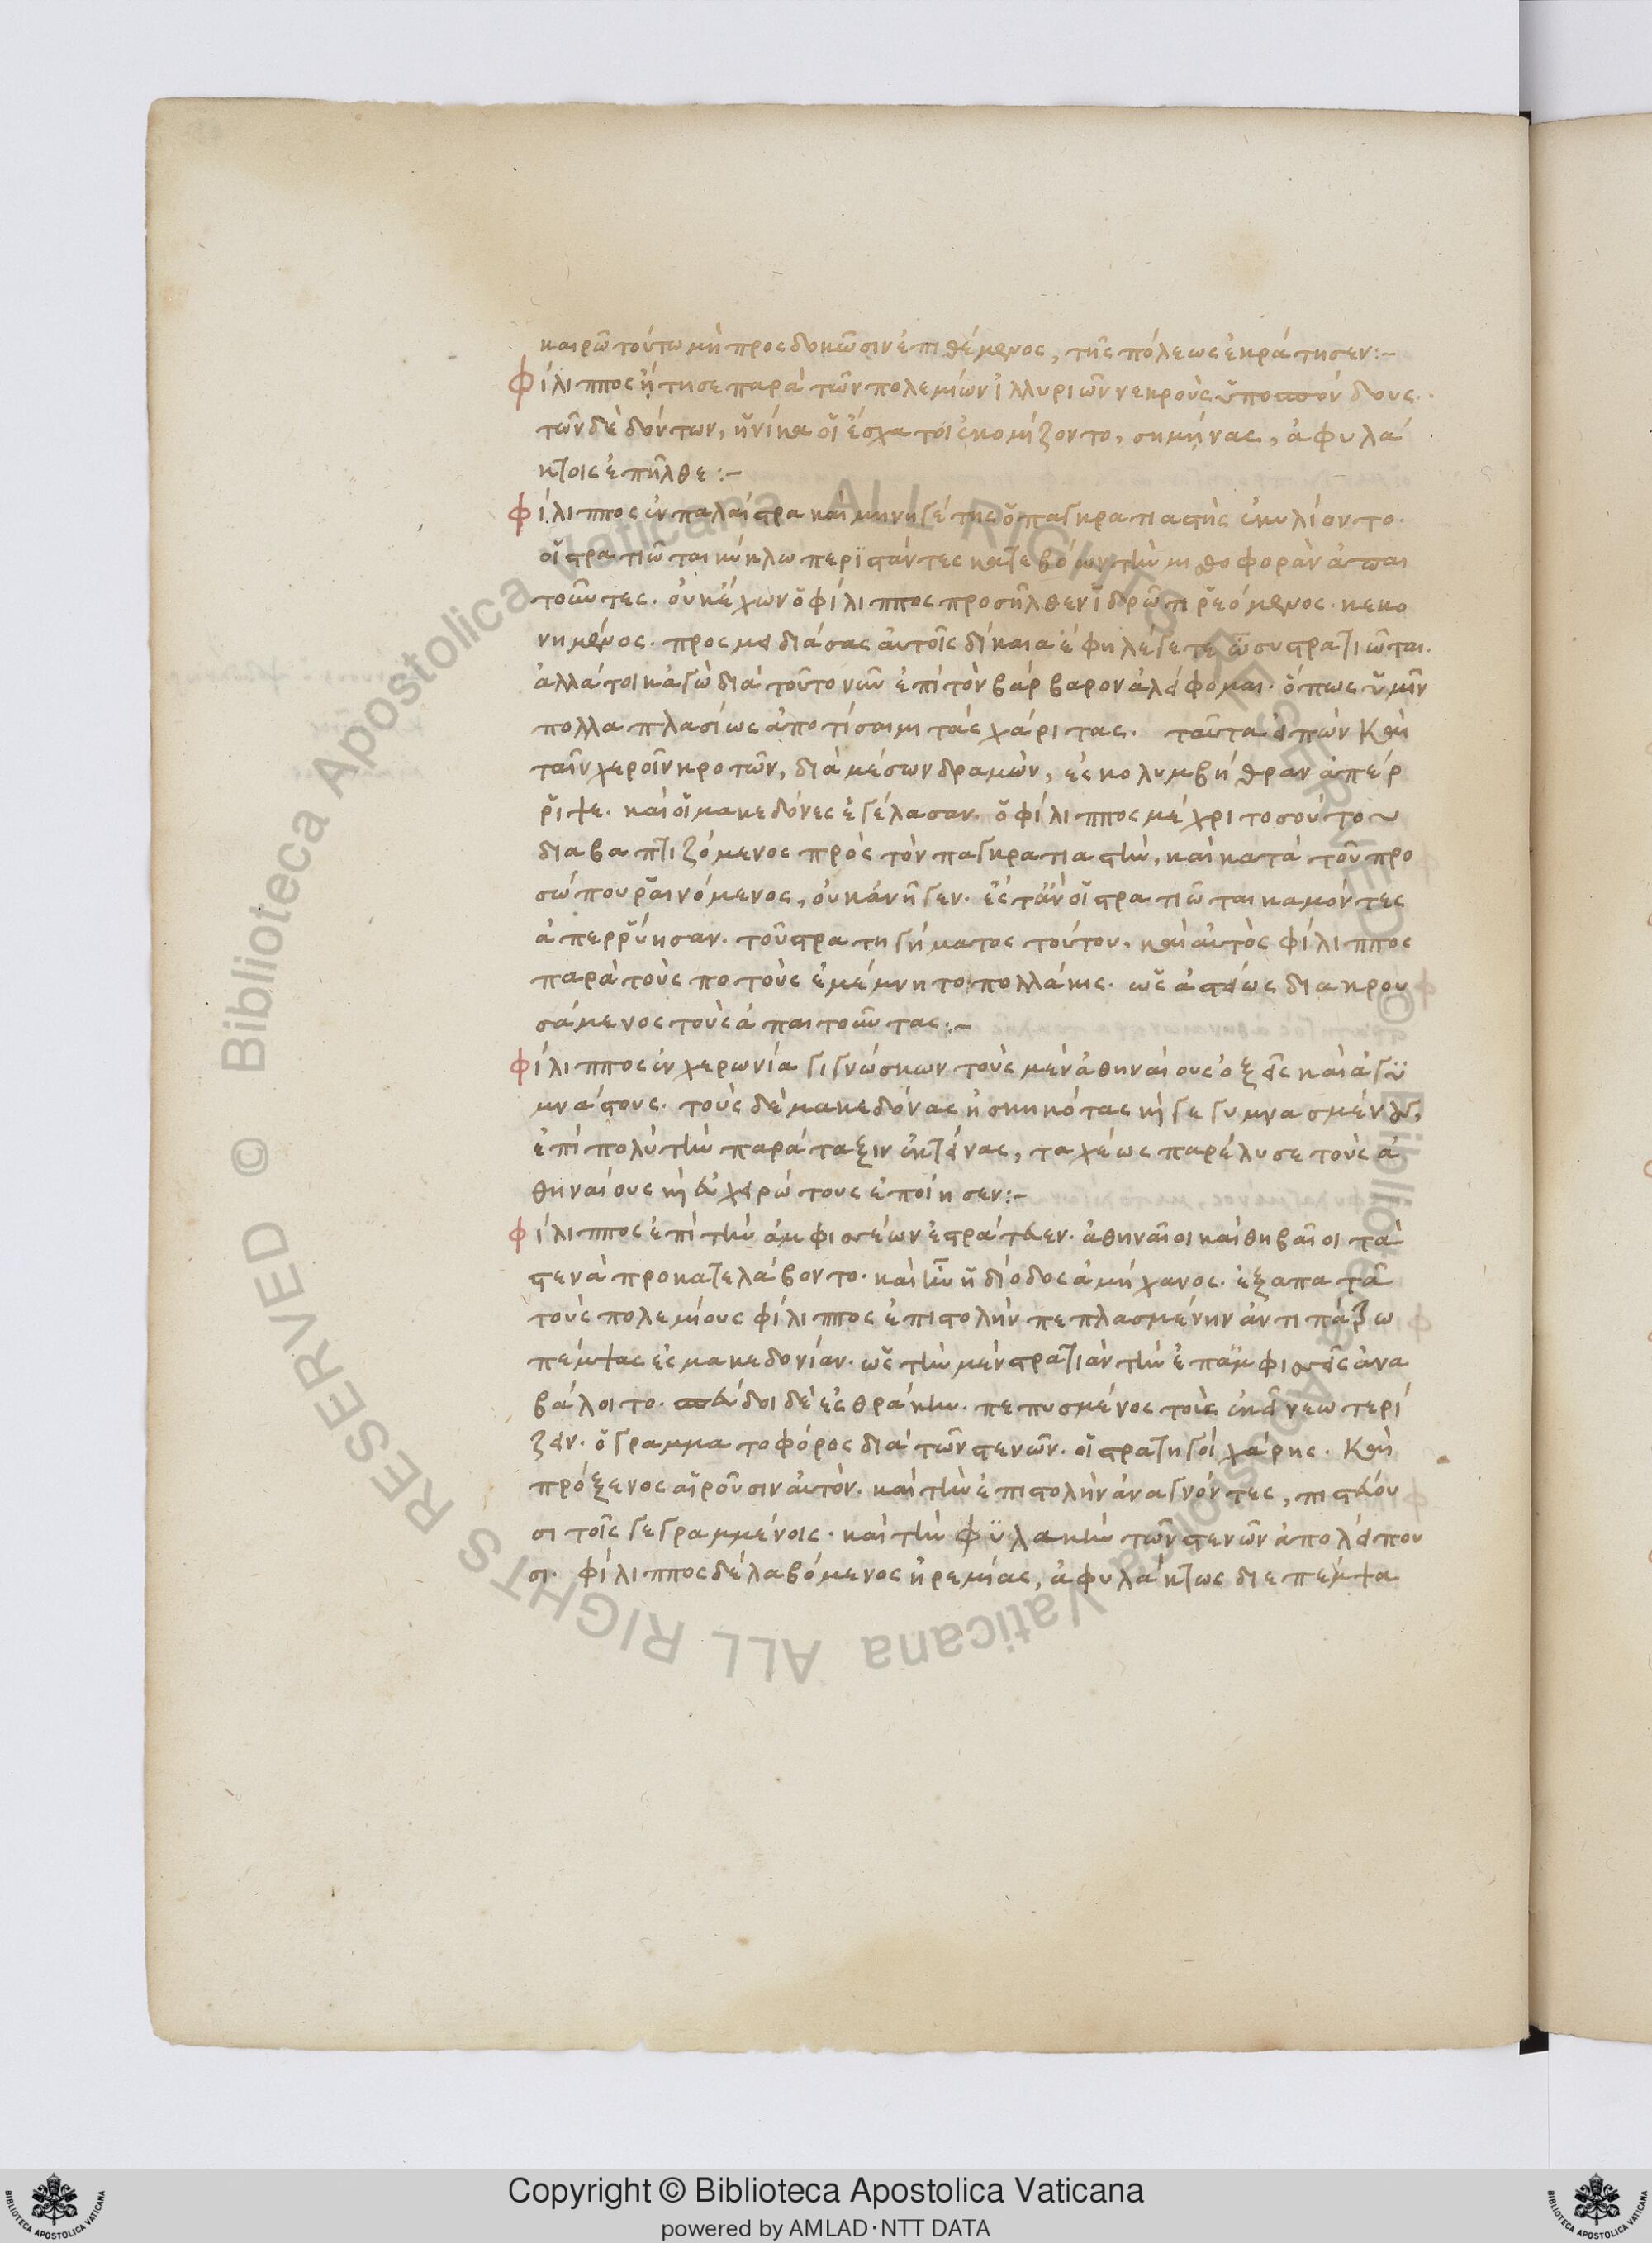 καιρῶ τούτω μὴ προσδοκῶσιν ἐπιθέμενος, τῆς πόλεως ἐκράτησεν:-
Φίλιππος ἤτησε παρὰ τῶν πολεμίων ἰλλυριῶν νεκροὺς ὑποσπόνδους.
τῶν δὲ δόντων, ἡνίκα οἱ ἔσχατοι ἐκομίζοντο, σημήνας, ἀφυλά
κτοις ἐπῆλθε:-
Φίλιππος ἐν παλαίστρα καὶ μηνγέτης ὁ παγκρατιαστὴς ἐκυλίοντο.
οἱ στρατιῶται κύκλω περϊστάντες κατεβόων τὴν μισθοφορὰν ἀπαι
τοῦντες. οὐκ ἔχων ὁ φίλιππος προσῆλθεν ἱδρῶτι ῥεόμενος. κεκο
νημένος. προσμειδιάσας αὐτοῖς δίκαια ἔφη λέγετε ὦ συστρατιῶται.
ἀλλά τοι κἀγὼ διὰ τοῦτο νῦν ἐπὶ τὸν βάρβαρον ἀλείφομαι. ὅπως ὑμῖν
πολλαπλασίως ἀποτίσαιμι τὰς χάριτας. ταῦτα εἰπὼν Καὶ
ταῖν χεροῖν κροτῶν, διὰ μέσων δραμὼν, ἐς κολυμβήθραν ἀπέρ
ῥιψε. καὶ οἱ μακεδόνες ἐγέλασαν. ὁ φίλιππος μέχρι τοσούτου
διαβαπτιζόμενος πρὸς τὸν παγκρατιαστὴν, καὶ κατὰ τοῦ προ
σώπου ῥαινόμενος, οὐκ ἀνῆγεν. ἔς τ' ἂν οἱ στρατιῶται καμόντες
ἀπερρύησαν. τοῦ στρατηγήματος τούτου, καὶ αὐτὸς φίλιππος
παρὰ τοὺς πότους ἐμέμνητο πολλάκις. ὡς ἀστείως διακρου
σάμενος τοὺς ἀπαιτοῦντας:-
Φίλιππος ἐν χερωνία γιγνώσκων τοὺς μὲν ἀθηναίους ὀξεῖς καὶ ἀγϋ
μνάστους. τοὺς δὲ μακεδόνας ἠσκηκότας καὶ γεγυμνασμένους,
ἐπὶ πολὺ τὴν παράταξιν ἐκτείνας, ταχέως παρέλυσε τοὺς ἀ
θηναίους καὶ εὐχειρώτους ἐποίησεν:-
Φίλιππος ἐπὶ τὴν ἀμφισσέων ἐστράτευεν. ἀθηναῖοι καὶ θηβαῖοι τὰ
στενὰ προκατελάβοντο. καὶ ἦν ἡ δίοδος ἀμήχανος. ἐξαπατᾶ
τοὺς πολεμίους φίλιππος ἐπιστολὴν πεπλασμένην ἀντιπάτρω
πέμψας ἐς μακεδονίαν. ὡς τὴν μὲν στρατιὰν τὴν ἐπ' ἀμφισσεῖς ἀνα
βάλοιτο. σπεύδοι δὲ ἐς θράκην. πεπυσμένος τοὺς ἐκεῖ νεωτερί
ζειν. ὁ γραμματοφόρος διὰ τῶν στενῶν. οἱ στρατηγοὶ χάρης. Καὶ
πρόξενος αἱροῦσιν αὐτόν. καὶ τὴν ἐπιστολὴν ἀναγνόντες, πιστεύου
σι τοῖς γεγραμμένοις. καὶ τὴν φϋλακὴν τῶν στενῶν ἀπολείπου
σι. φίλιππος δὲ λαβόμενος ἠρεμίας, ἀφυλάκτως διεπέμψα
Copyright © Biblioteca Apostolica Vaticana
powered by AMLAD·NTT DATA
© Biblioteca Apostolica Vaticana ALL RIGHTS RESERVED
© Biblioteca Apostolica Vaticana ALL RIGHTS RESERVED
BIBLIOTECA APOSTOLICA VATICANA
BIBLIOTECA APOSTOLICA VATICANA